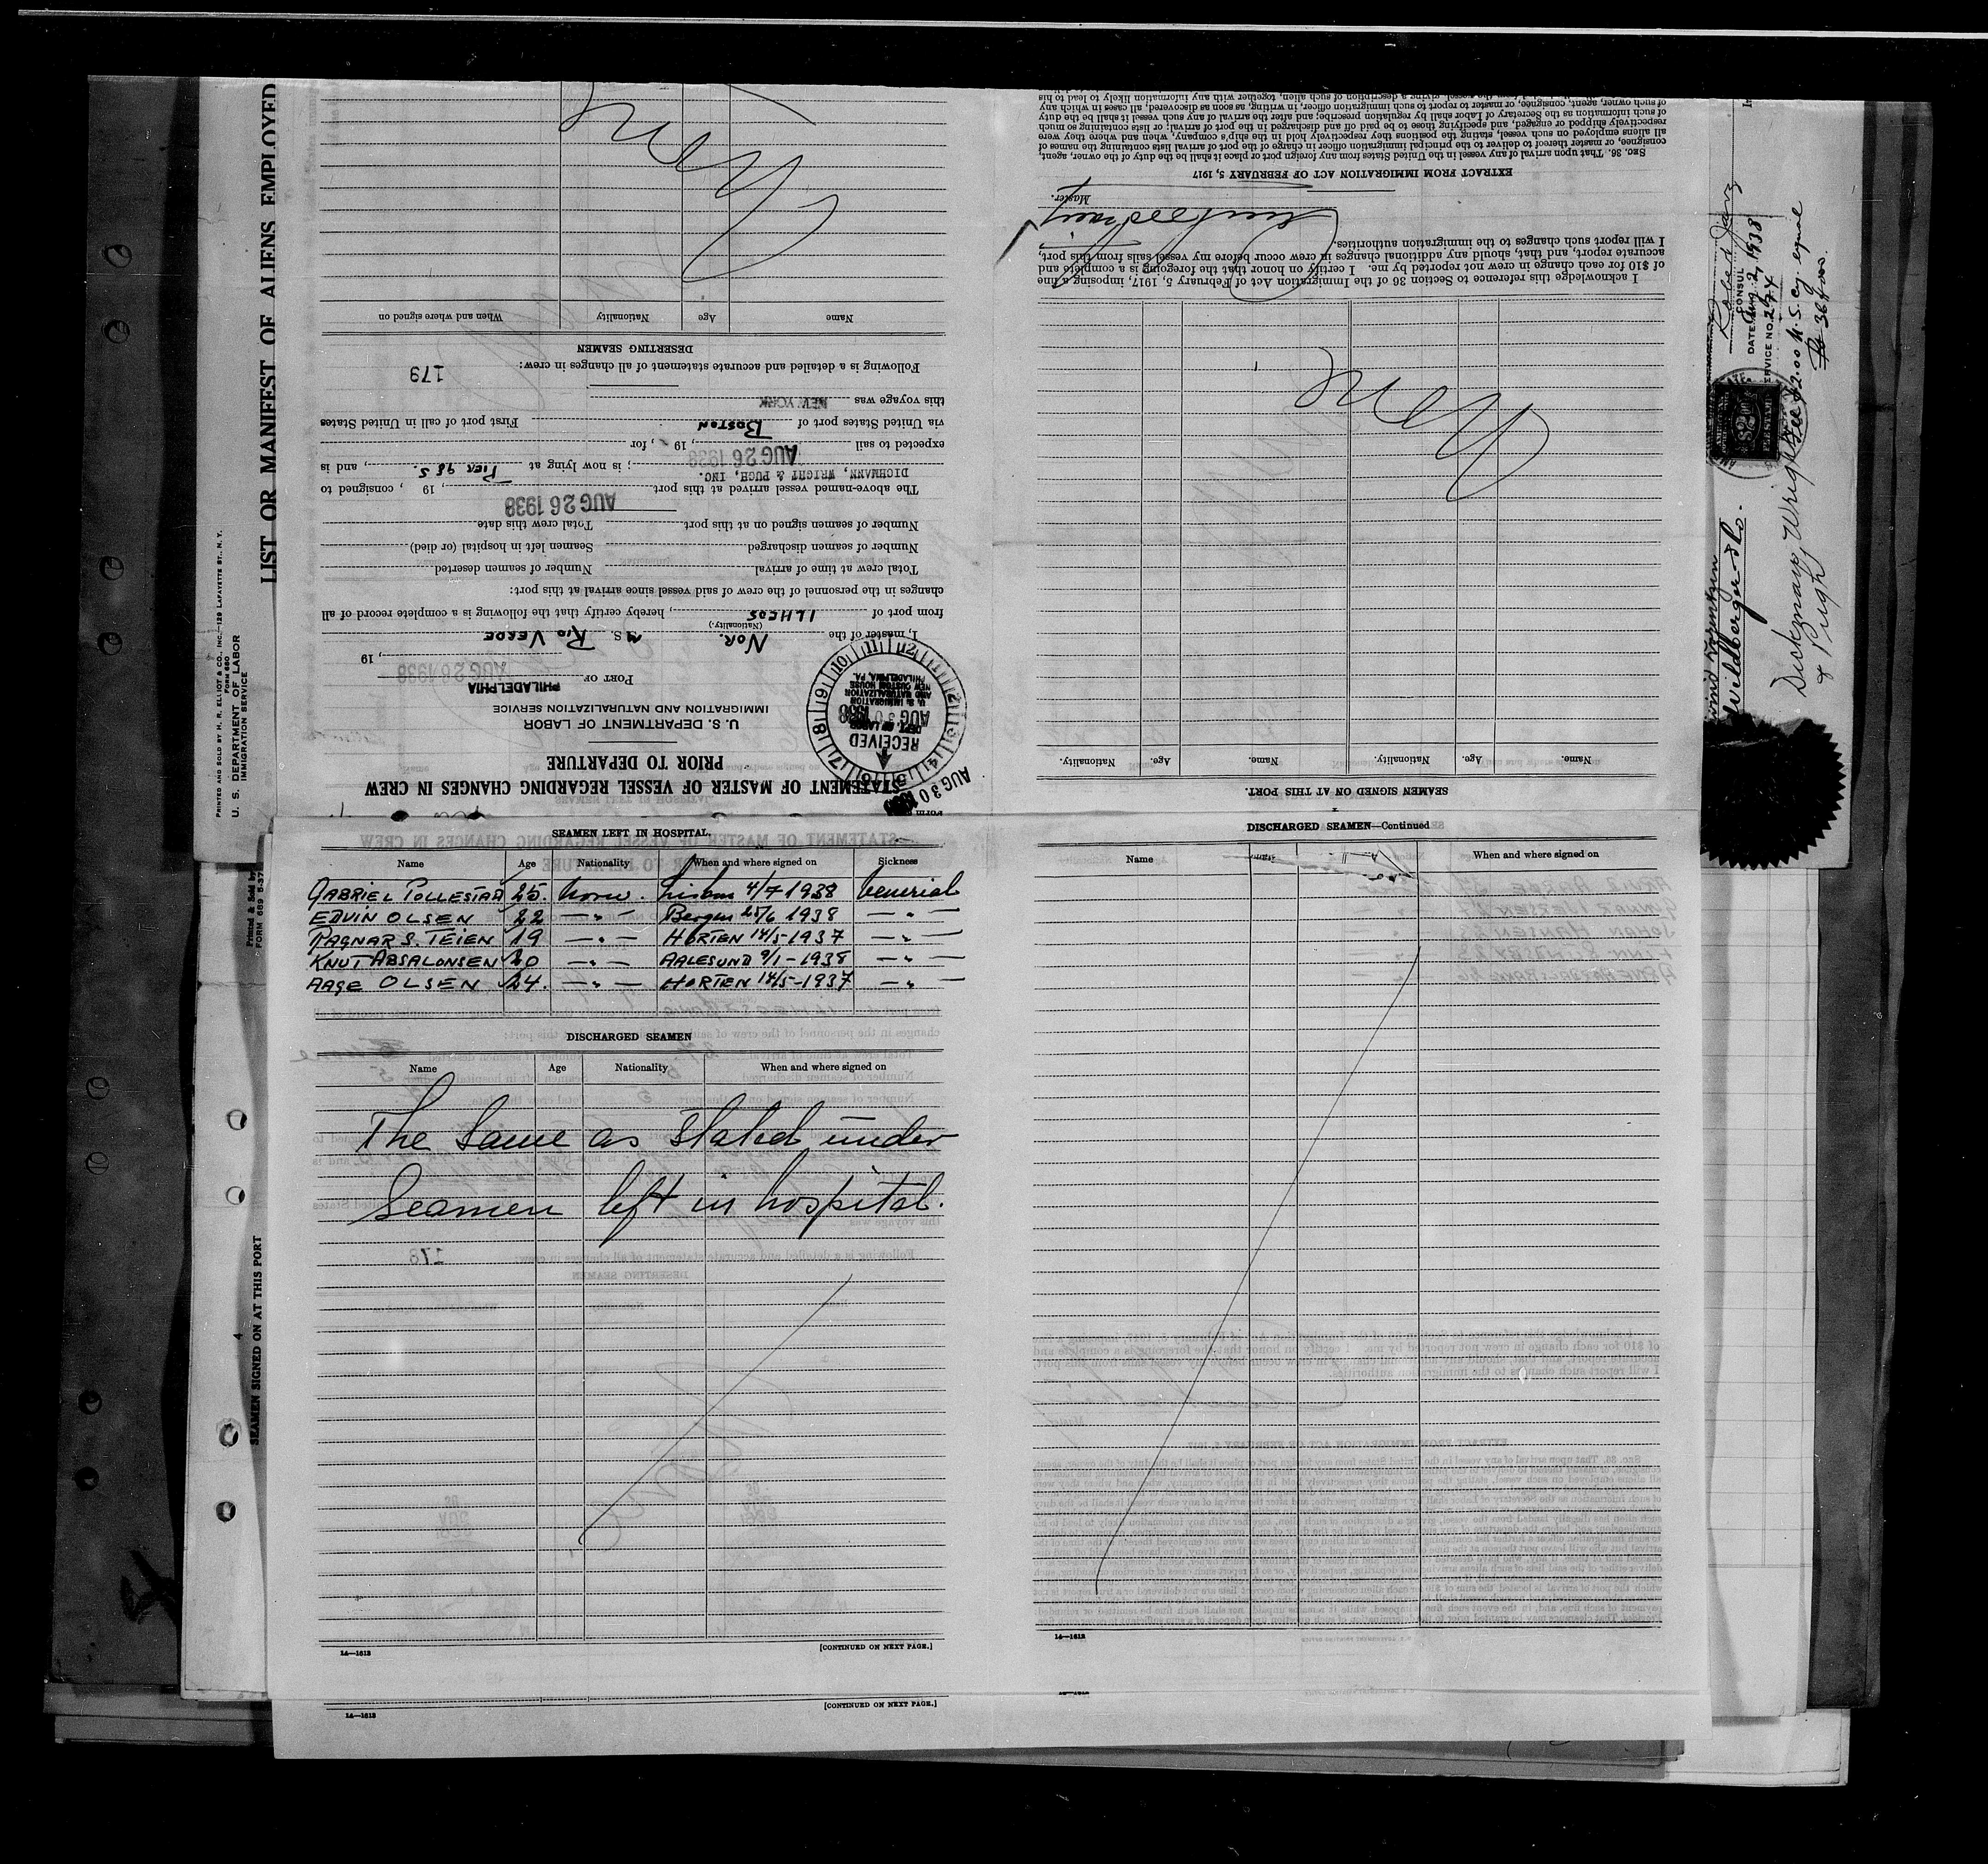 LIST OR MANIFEST OF ALIENS EMPLOYED
PRINTED AND SOLD BY H. R. ELLIOT & CO., INC.—129 LAFAYETTE ST., N. Y.
FORM 680
U. S. DEPARTMENT OF LABOR
IMMIGRATION SERVICE
Printed & Sold by
FORM 689 5-37
SEAMEN SIGNED ON AT THIS PORT
4
STATEMENT OF MASTER OF VESSEL REGARDING CHANGES IN CREW
PRIOR TO DEPARTURE
U. S. DEPARTMENT OF LABOR
IMMIGRATION AND NATURALIZATION SERVICE
PORT OF PHILADELPHIA
AUG 26 1938, 19
I, master of the NOR. M S. RIO VERDE
(Nationality.)
from port of ILHEOS, hereby certify that the following is a complete record of all
changes in the personnel of the crew of said vessel since arrival at this port:
Total crew at time of arrival Number of seamen deserted
Number of seamen discharged Seamen left in hospital (or died)
Number of seamen signed on at this port Total crew this date
The above-named vessel arrived at this port AUG 26 1938, 19 , consigned to
DICHMANN, WRIGHT & PUGH, INC. ; is now lying at PIER 98 S. , and is
expected to sail AUG 26 1938, 19 , for
via United States port of BOSTON First port of call in United States
this voyage was NEW YORK
Following is a detailed and accurate statement of all changes in crew:
179
DESERTING SEAMEN
Name Age Nationality When and where signed on
None
RECEIVED
AUG 30 1938
U. S. IMMIGRATION
AND NATURALIZATION
NEW CUSTOM HOUSE
PHILADELPHIA, PA.
AUG 30 1938
SEAMEN SIGNED ON AT THIS PORT.
Name. Age. Nationality. Name. Age. Nationality.
None
I acknowledge this reference to Section 36 of the Immigration Act of February 5, 1917, imposing a fine
of $10 for each change in crew not reported by me. I certify on honor that the foregoing is a complete and
accurate report, and that, should any additional changes in crew occur before my vessel sails from this port,
I will report such changes to the immigration authorities.
Master.
EXTRACT FROM IMMIGRATION ACT OF FEBRUARY 5, 1917
SEC. 36. That upon arrival of any vessel in the United States from any foreign port or place it shall be the duty of the owner, agent,
consignee, or master thereof to deliver to the principal immigration officer in charge of the port of arrival lists containing the names of
all aliens employed on such vessel, stating the positions they respectively hold in the ship's company, when and where they were
respectively shipped or engaged, and specifying those to be paid off and discharged in the port of arrival; or lists containing so much
of such information as the Secretary of Labor shall by regulation prescribe; and after the arrival of any such vessel it shall be the duty
of such owner, agent, consignee, or master to report to such immigration officer, in writing, as soon as discovered, all cases in which any
CONSUL
DATE Aug. 2, 1938
SERVICE NO. 274
Fee $2.00 U. S. Cy. equal
$2.00
FEE STAMP
Wildberger & Co.
Dichmann, Wright
& Pugh
SEAMEN LEFT IN HOSPITAL.
Name Age Nationality When and where signed on Sickness
GABRIEL POLLESTAD 25. norw. Lisbon 4/7 1938 venerial
EDVIN OLSEN 22 —"— Bergen 25/6 1938 —"—
RAGNAR S. TEIEN 19 —"— HORTEN 14/5-1937 —"—
KNUT ABSALONSEN 20 —"— AALESUND 9/1-1938 —"—
AAGE OLSEN 24. —"— HORTEN 14/5-1937 —"—
DISCHARGED SEAMEN
Name Age Nationality When and where signed on
The same as stated under
Seamen left in hospital.
178
14—1613
[CONTINUED ON NEXT PAGE.]
[CONTINUED ON NEXT PAGE.]
14—1613
DISCHARGED SEAMEN—Continued
Name When and where signed on
14—1613